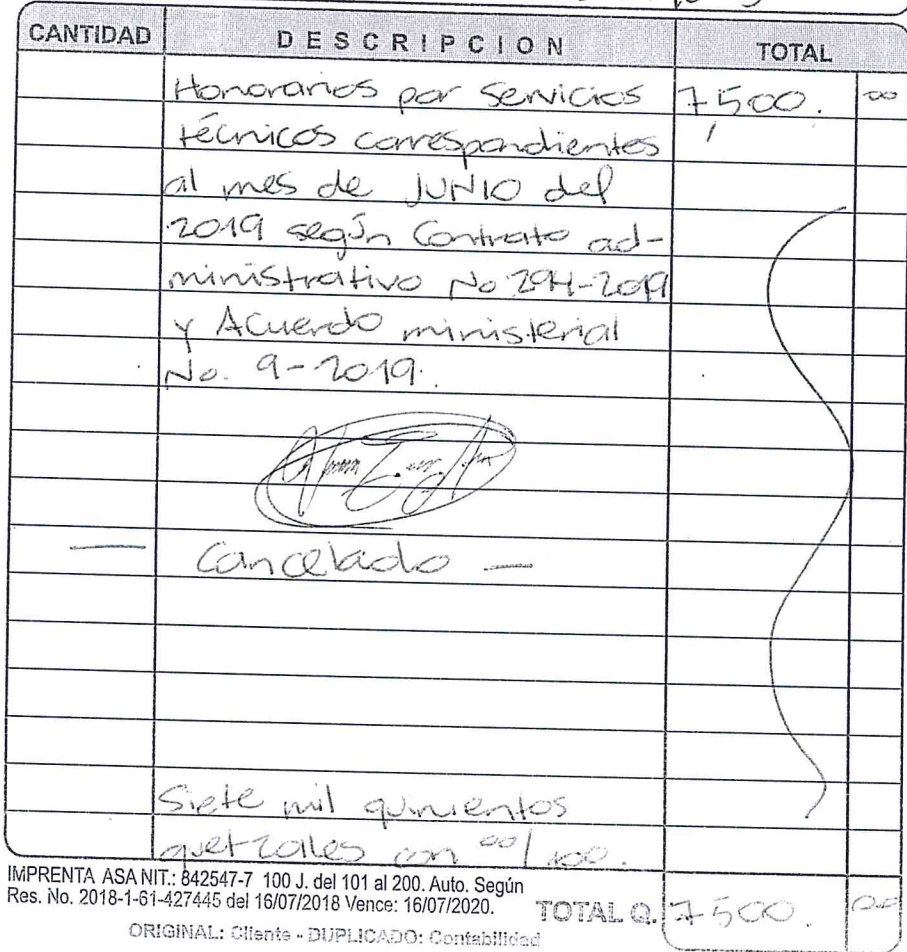 CANTIDAD DESCRIPCION TOTAL
Honorarios por servicios 7,500. 00
técnicos correspondientes
al mes de JUNIO del
2019 según Contrato ad-
ministrativo No 294-2019
y Acuerdo ministerial
No. 9-2019.
— Cancelado —
Siete mil quinientos
quetzales con 00/100.
IMPRENTA ASA NIT.: 842547-7 100 J. del 101 al 200. Auto. Según
Res. No. 2018-1-61-427445 del 16/07/2018 Vence: 16/07/2020.
TOTAL Q. 7500. 00
ORIGINAL: Cliente - DUPLICADO: Contabilidad